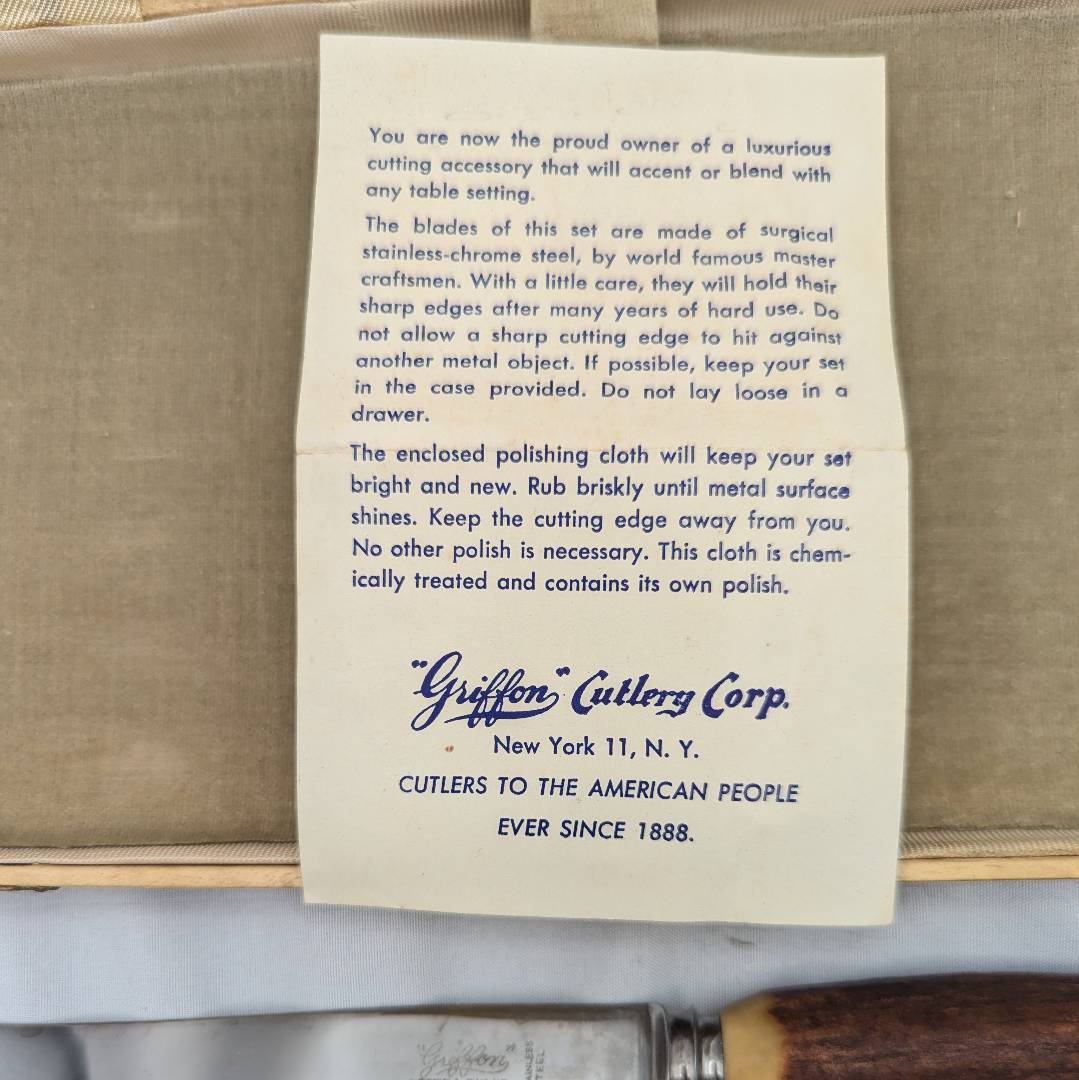 You are now the proud owner of a luxurious
cutting accessory that will accent or blend with
any table setting.
The blades of this set are made of surgical
stainless-chrome steel, by world famous master
craftsmen. With a little care, they will hold their
sharp edges after many years of hard use. Do
not allow a sharp cutting edge to hit against
another metal object. If possible, keep your set
in the case provided. Do not lay loose in a
drawer.
The enclosed polishing cloth will keep your set
bright and new. Rub briskly until metal surface
shines. Keep the cutting edge away from you.
No other polish is necessary. This cloth is chem-
ically treated and contains its own polish.
"Griffon" Cutlery Corp.
New York 11, N. Y.
CUTLERS TO THE AMERICAN PEOPLE
EVER SINCE 1888.
"Griffon"
STEEL